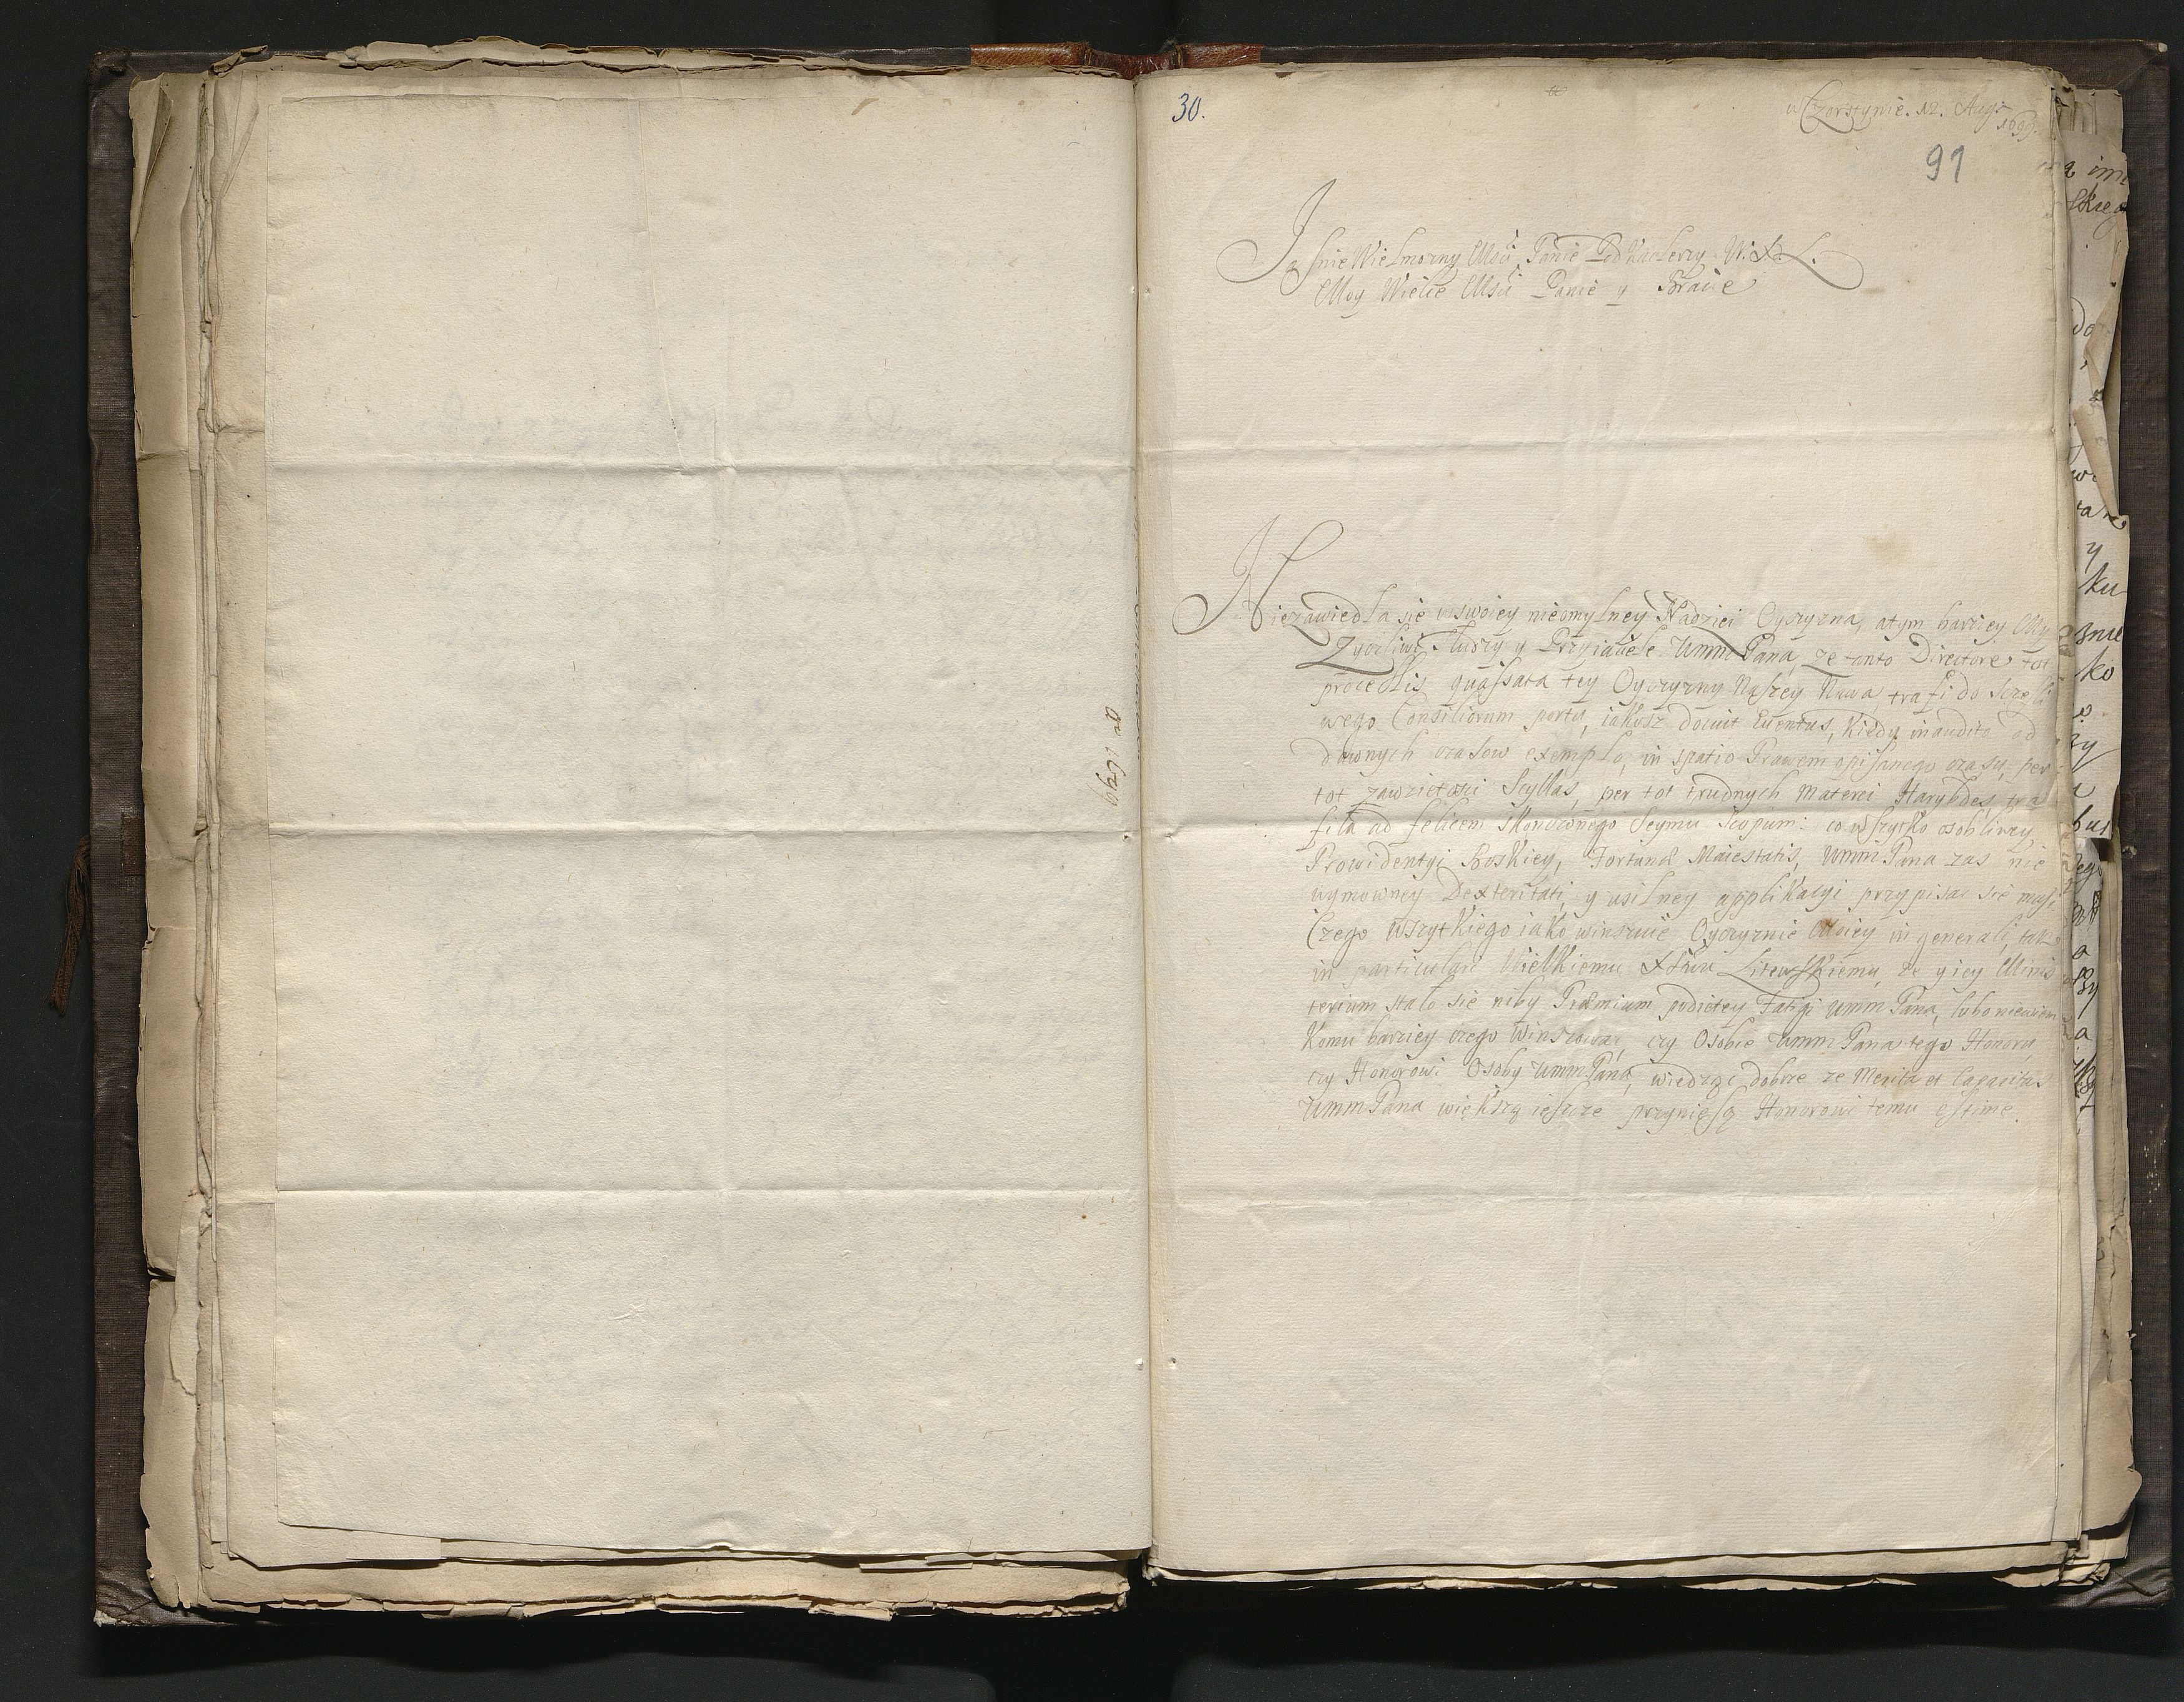 30.
w Czorsztynie. 12. Augi
1699.
91
Jaśnie Wielmożny Msći Panie Pod Kanclerzy W. X. L.
Moy Wielce Msći Panie y Bracie
Niezawiedła się w swoiey nieomylney Nadziei Oyczyzna, atym barziey My
Zyczliwi słudzy y Przyiaciele WmmPana, ze tanto Directore tot
procellis quassata tey Oyczyzny Naszey Nawa, trafi do szczęśli
wego Consiliorum portu, iakosz docuit Euentus, kiedy inaudito od
dawnych czasow exemplo, in spatio Prawem opisanego czasu, per
tot zawziętości Scyllas, per tot trudnych Materei Harybdes, tra
fiła ad felicem skonczonego Seymu Scopum: co wszytko osobliwey
Prowidentyi Boskiey, Fortunæ Maiestatis, WmmPana zas nie
wymowney Dexteritati, y usilney applikacyi przypisac się musi
Czego wszytkiego iako winszuię Oyczyznie Moiey in generali, tak
in particulari Wielkiemu Xstwu Litewskiemu, ze y iey Minis
terium stało się niby Præmium podiętey Fatigi WmmPana, lubo niewiem
Komu barziey czego Winszowac, czy Osobie WmmPana tego Honoru,
czy Honorowi Osoby WmmPana, wiedząc dobrze ze Merita et Capacitas
WmmPana większą ieszcze przyniesą Honorowi temu estimę.